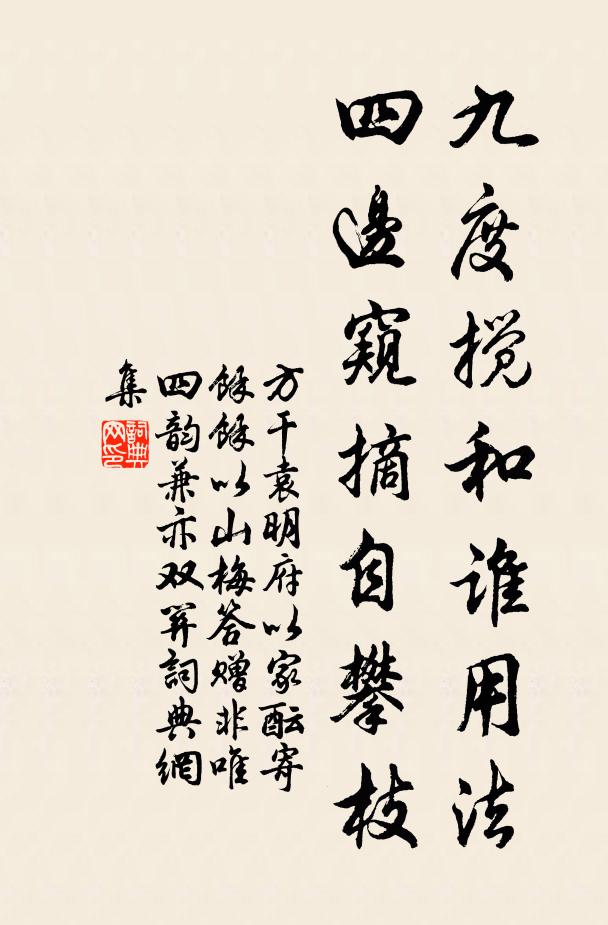 九度搅和谁用法
四邊窺摘自攀枝
方干袁明府以家酝寄
餘餘以山梅答赠非唯
四韵兼亦双关詞典網
集
詞典網印